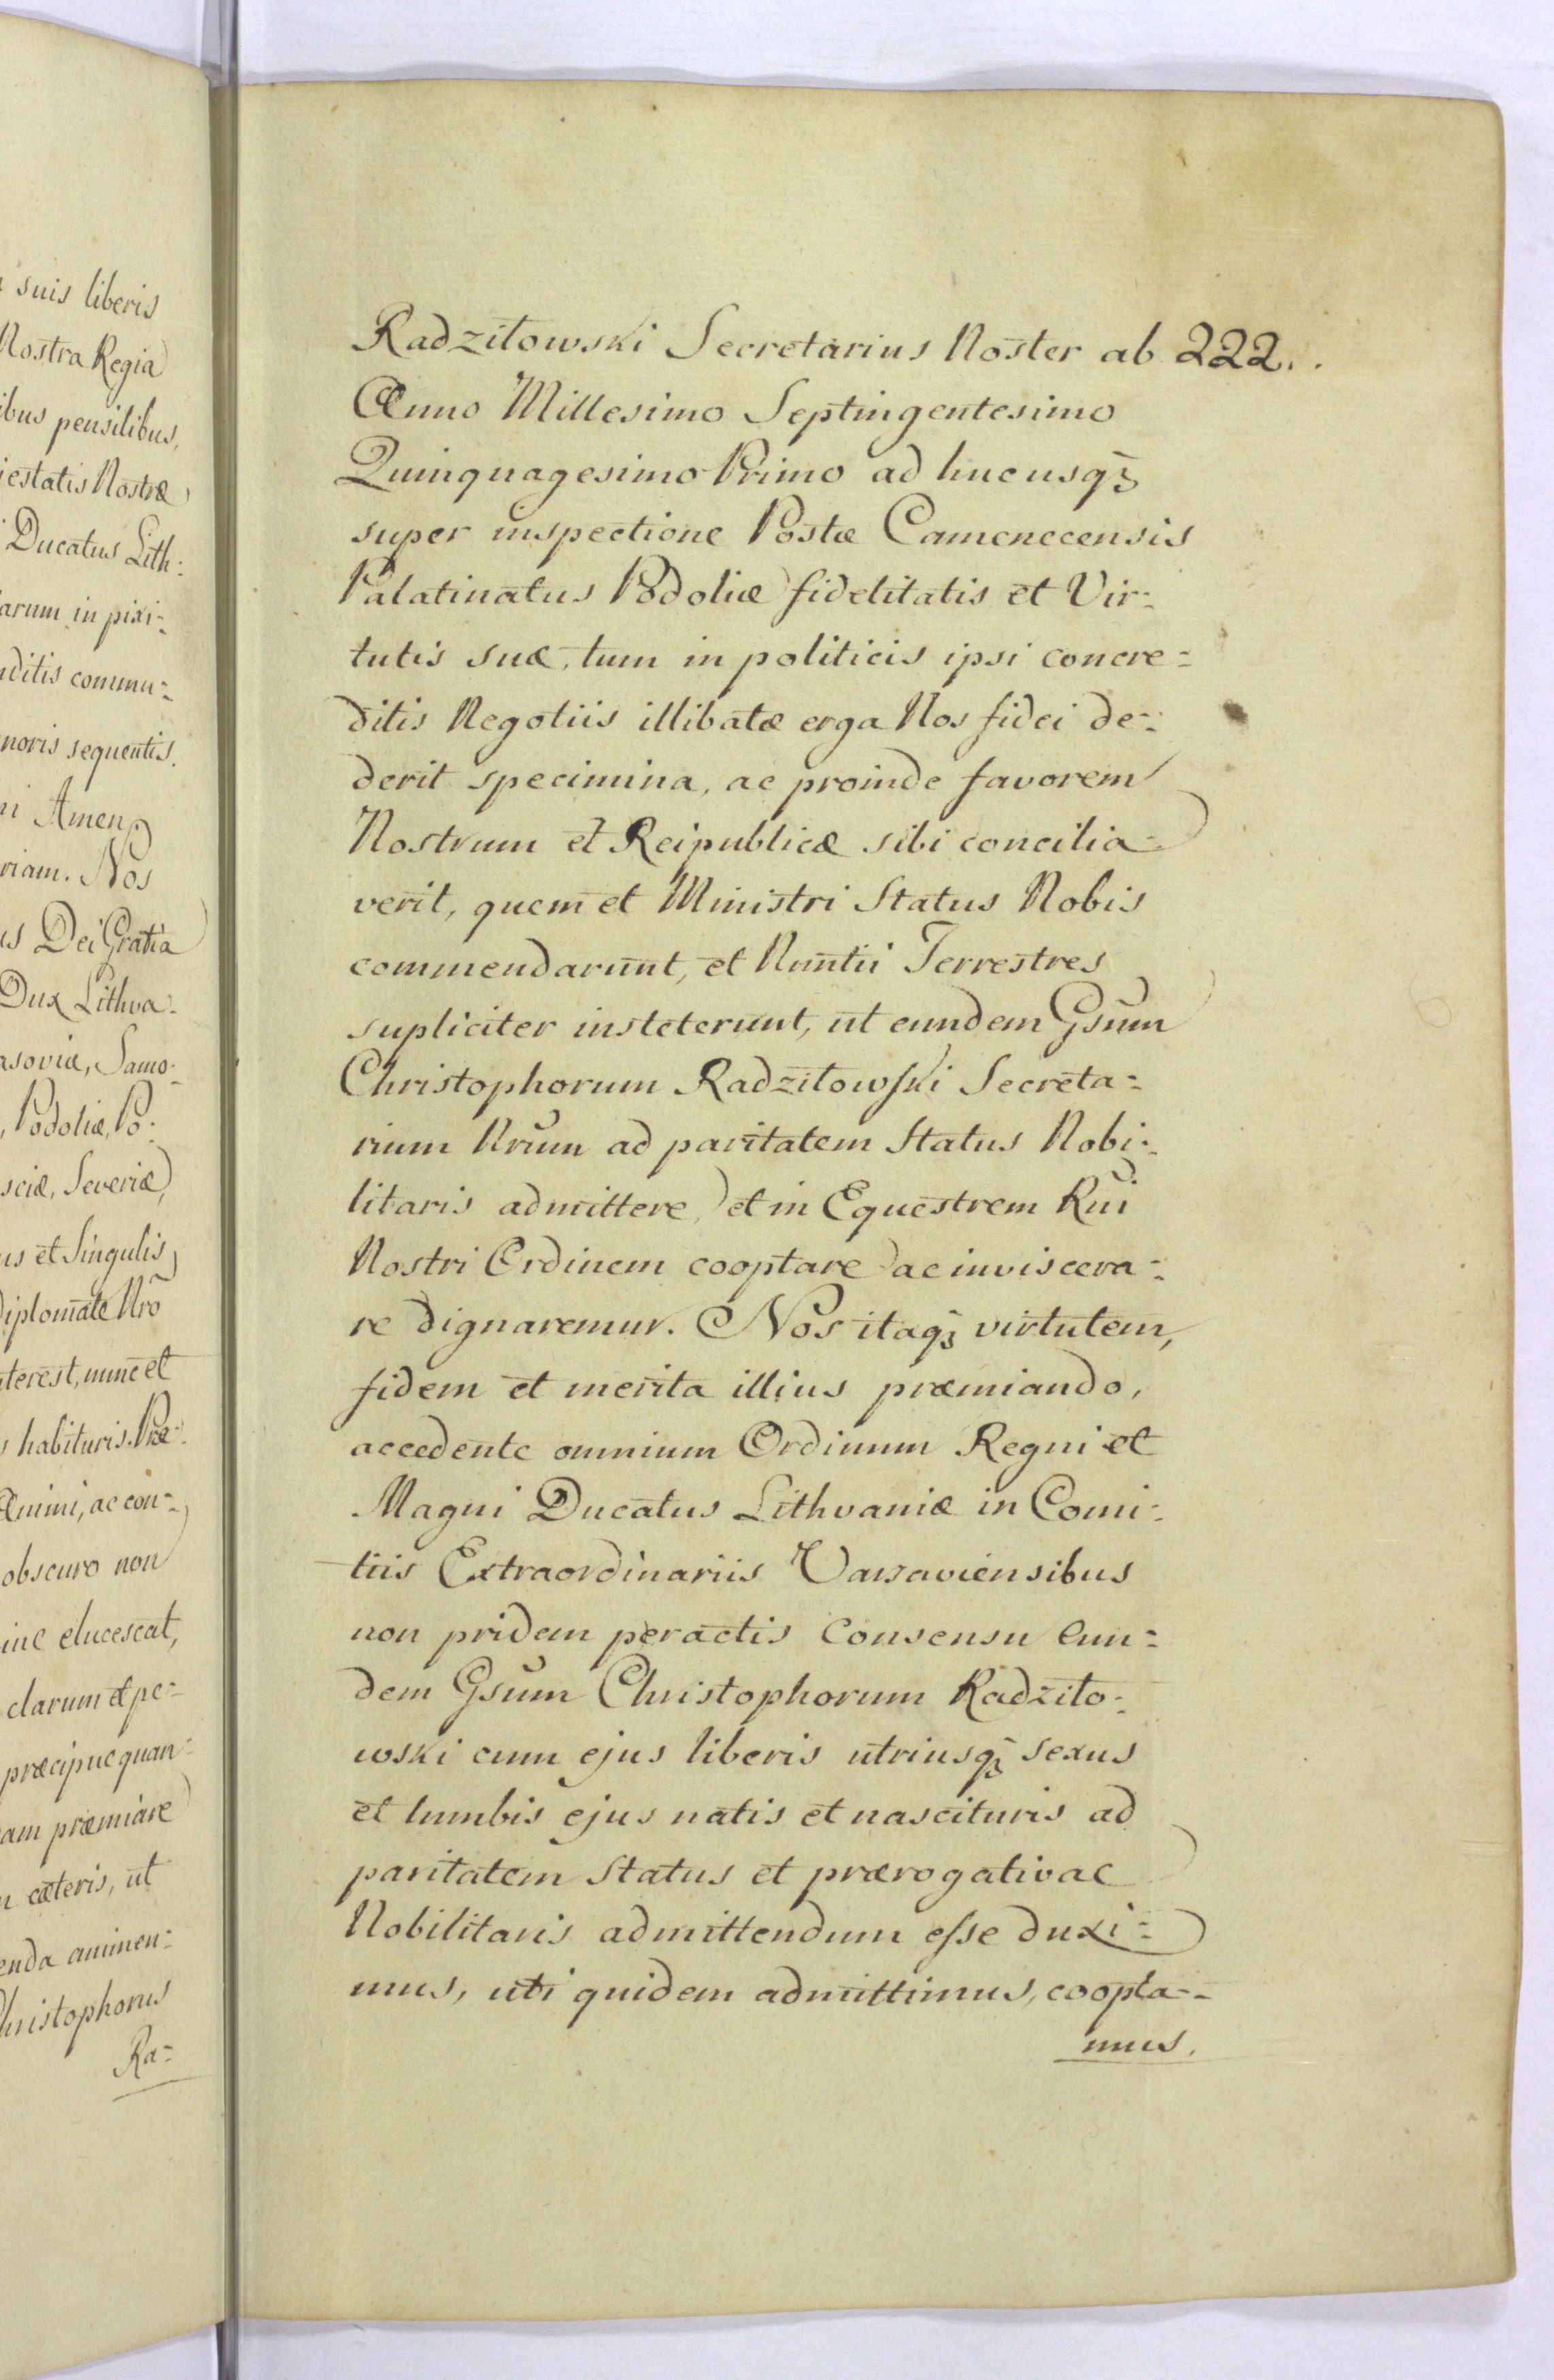 suis liberis
Nostra Regia
ibus pensilibus,
iestatis Nostræ
Ducatus Lith:
arum in pixi=
ditis commu=
noris sequentis.
ni Amen
riam. Nos
us Dei Gratia
Dux Lithva=
asoviæ, Samo=
, Podoliæ, Po=
sciæ, Severiæ,
us et Singulis
diplomate Nro̅
terest, nunc et
s habituris. Præ=
Animi, ac con=
obscuro non
ine elucescat,
clarum et pe=
præcipue quan=
am præmiare
n cæteris, ut
enda animen=
hristophorus
Ra=
Radzitowski Secretarius Noster ab 222..
Anno Millesimo Septingentesimo
Quinquagesimo Primo ad hucusq̃
super inspectione Postæ Camenecensis
Palatinatus Podoliæ fidelitatis et Vir=
tutis suæ, tum in politicis ipsi concre=
ditis Negotiis illibatæ erga Nos fidei de=
derit specimina, ac proinde favorem
Nostrum et Reipublicæ sibi concilia=
verit, quem et Ministri Status Nobis
commendarunt, et Nuntii Terrestres
supliciter insteterunt, ut eundem Gsum̃
Christophorum Radzitowski Secreta=
rium Nrum̃ ad paritatem Status Nobi=
litaris admittere, et in Equestrem Rni̅
Nostri Ordinem cooptare ac inviscera=
re dignaremur. Nos itaq̃ virtutem,
fidem et merita illius præmiando,
accedente omnium Ordinum Regni et
Magni Ducatus Lithvaniæ in Comi=
tiis Extraordinariis Varsaviensibus
non pridem peractis Consensu eun=
dem Gsum̃ Christophorum Radzito=
wski cum ejus liberis utriusq̃ sexus
et lumbis ejus natis et nascituris ad
paritatem Status et prærogativae
Nobilitaris admittendum esse duxi=
mus, uti quidem admittimus, coopta=
mus.